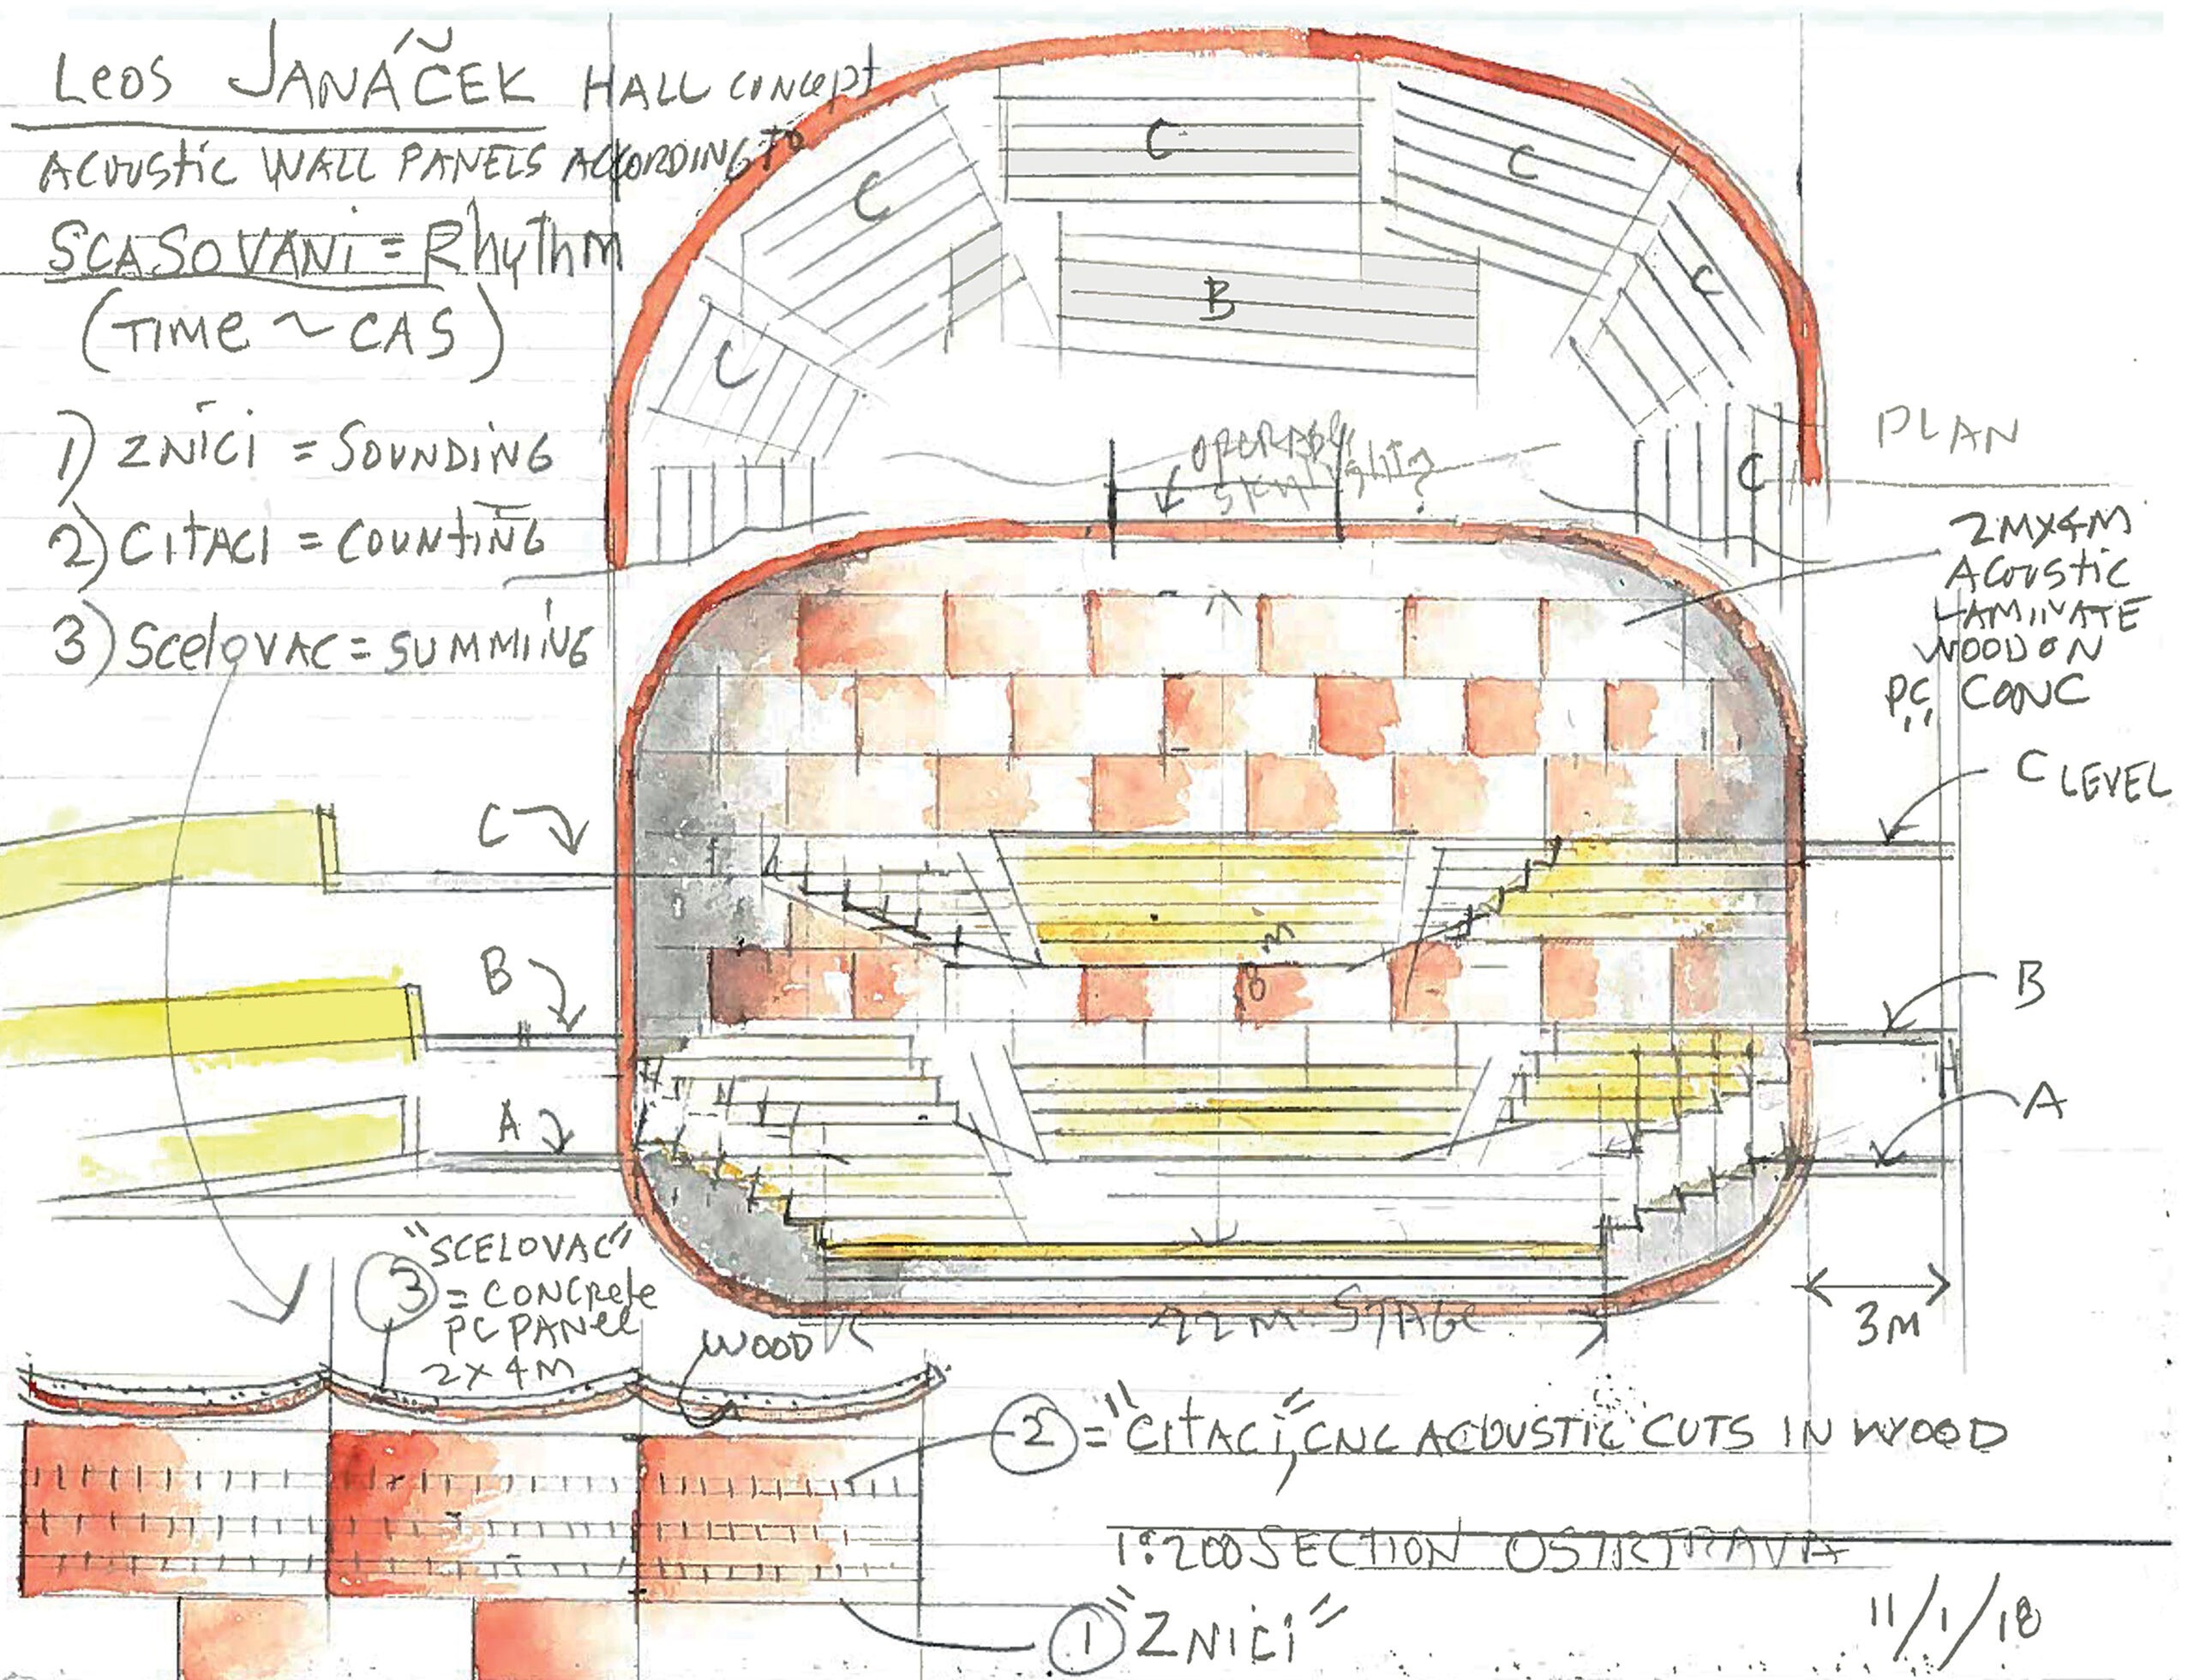 Leos JANÁČEK HALL concept
Acoustic WALL PANELS ACCORDING to
SCASOVANI = Rhythm
(TIME ~ CAS)
1) ZNÍCÍ = SOUNDING
2) CITACI = COUNTING
3) Scelovac = SUMMING
C
C
C
B
C
C
C
OPERABLE
SKYLIGHT?
PLAN
2M x 4M
Acoustic
LAMINATE
WOOD ON
PC CONC
C LEVEL
C
B
A
8 M
B
A
3M
22 M. STAGE
"SCELOVAC"
③ = CONCRete
PC PANel
2 x 4 M
WOOD
② = "CITACI," CNC ACOUSTIC CUTS IN WOOD
1:200 SECTION OSTRTRAVA
① "ZNICI"
11/1/18